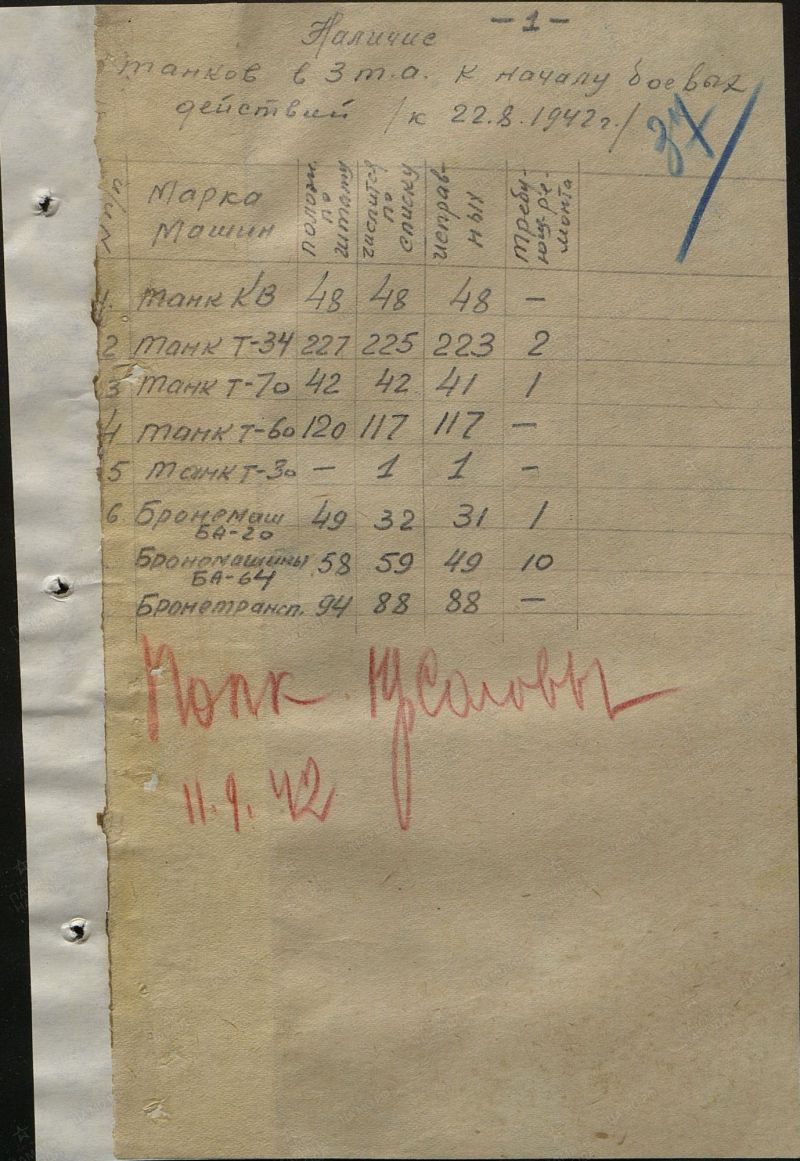 -1-
Наличие
танков в 3 т.а. к началу боевых
действий /к 22.8.1942г./
37
N п/п
Марка Машин
полож. по штату
числится по списку
исправных
требующ. ремонта
1. танк КВ 48 48 48 —
2 танк Т-34 227 225 223 2
3 танк Т-70 42 42 41 1
4 танк Т-60 120 117 117 —
5 танк Т-30 — 1 1 —
6 Бронемаш БА-20 49 32 31 1
Брономашины БА-64 58 59 49 10
Бронетрансп. 94 88 88 —
11.9.42